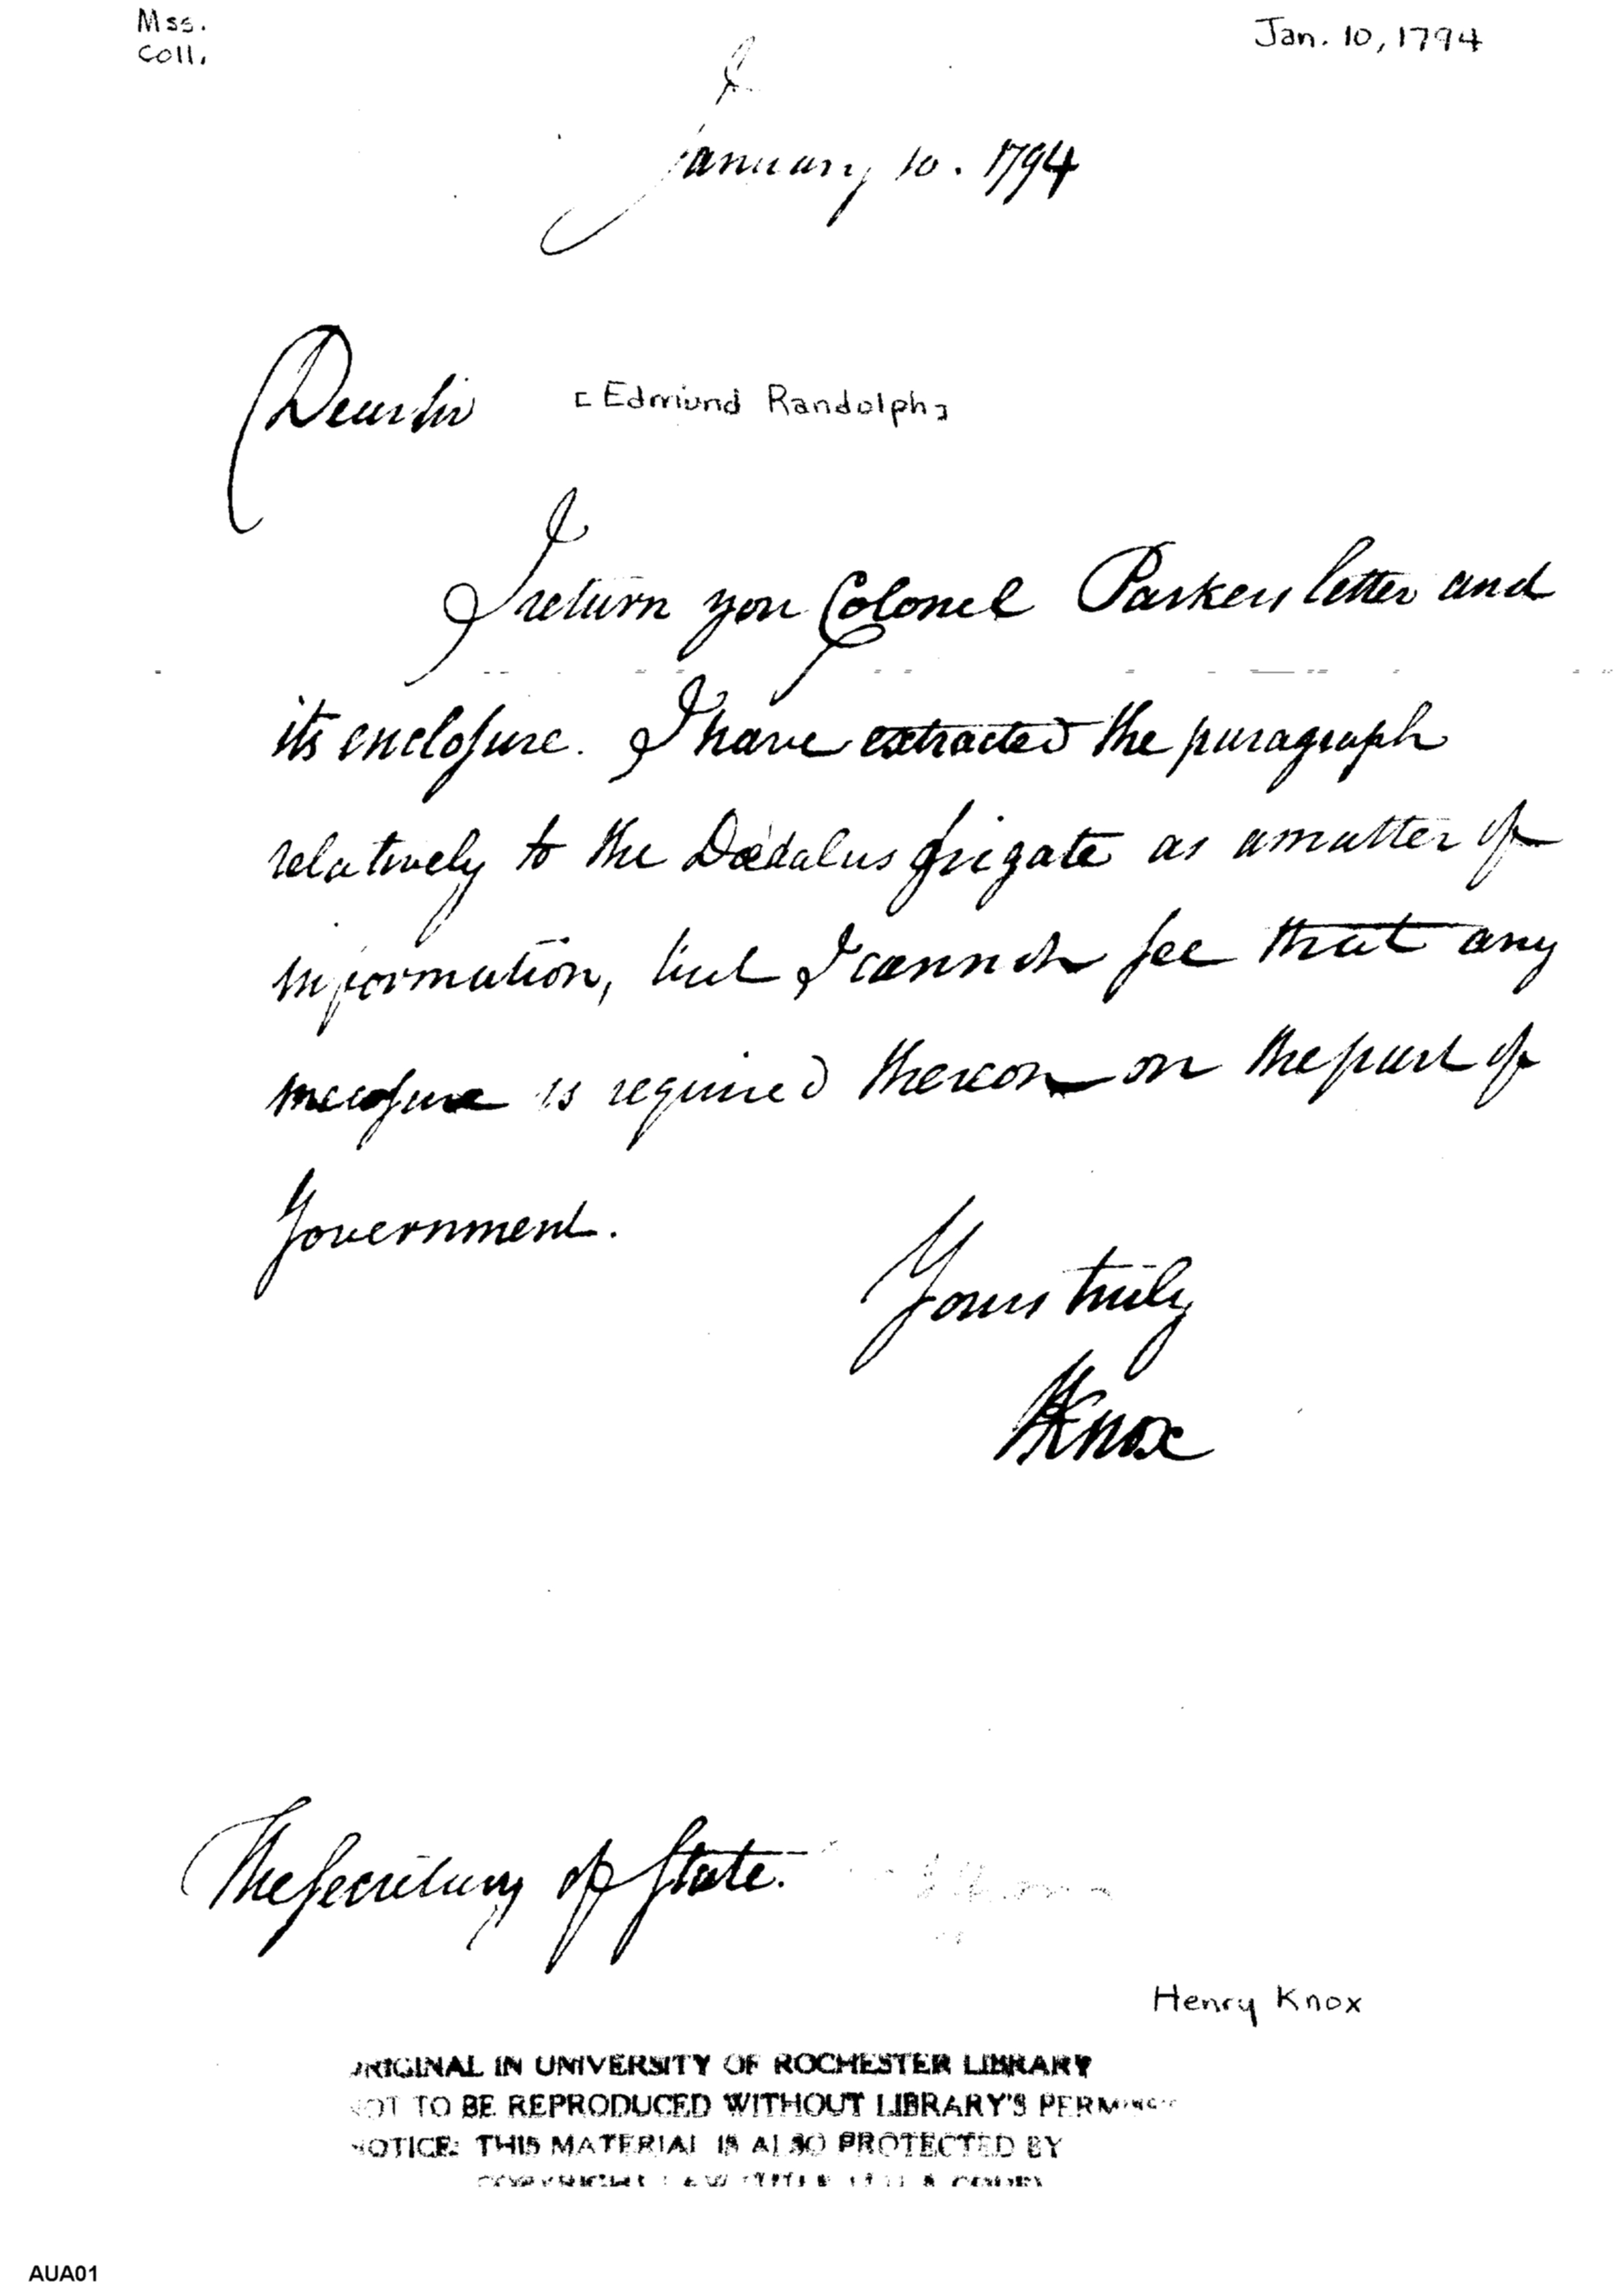 Mss.
Coll.
Jan. 10, 1794
January 10. 1794
Dear sir
[Edmund Randolph]
I return you Colonel Parkers letter and
its enclosure. I have extracted the paragraph
relatively to the Dædalus frigate as a matter of
information, but I cannot see that any
measure is required thereon on the part of
Government.
Yours truly
HKnox
The Secretary of State.
Henry Knox
ORIGINAL IN UNIVERSITY OF ROCHESTER LIBRARY
NOT TO BE REPRODUCED WITHOUT LIBRARY'S
NOTICE: THIS MATERIAL IS ALSO PROTECTED BY
AUA01